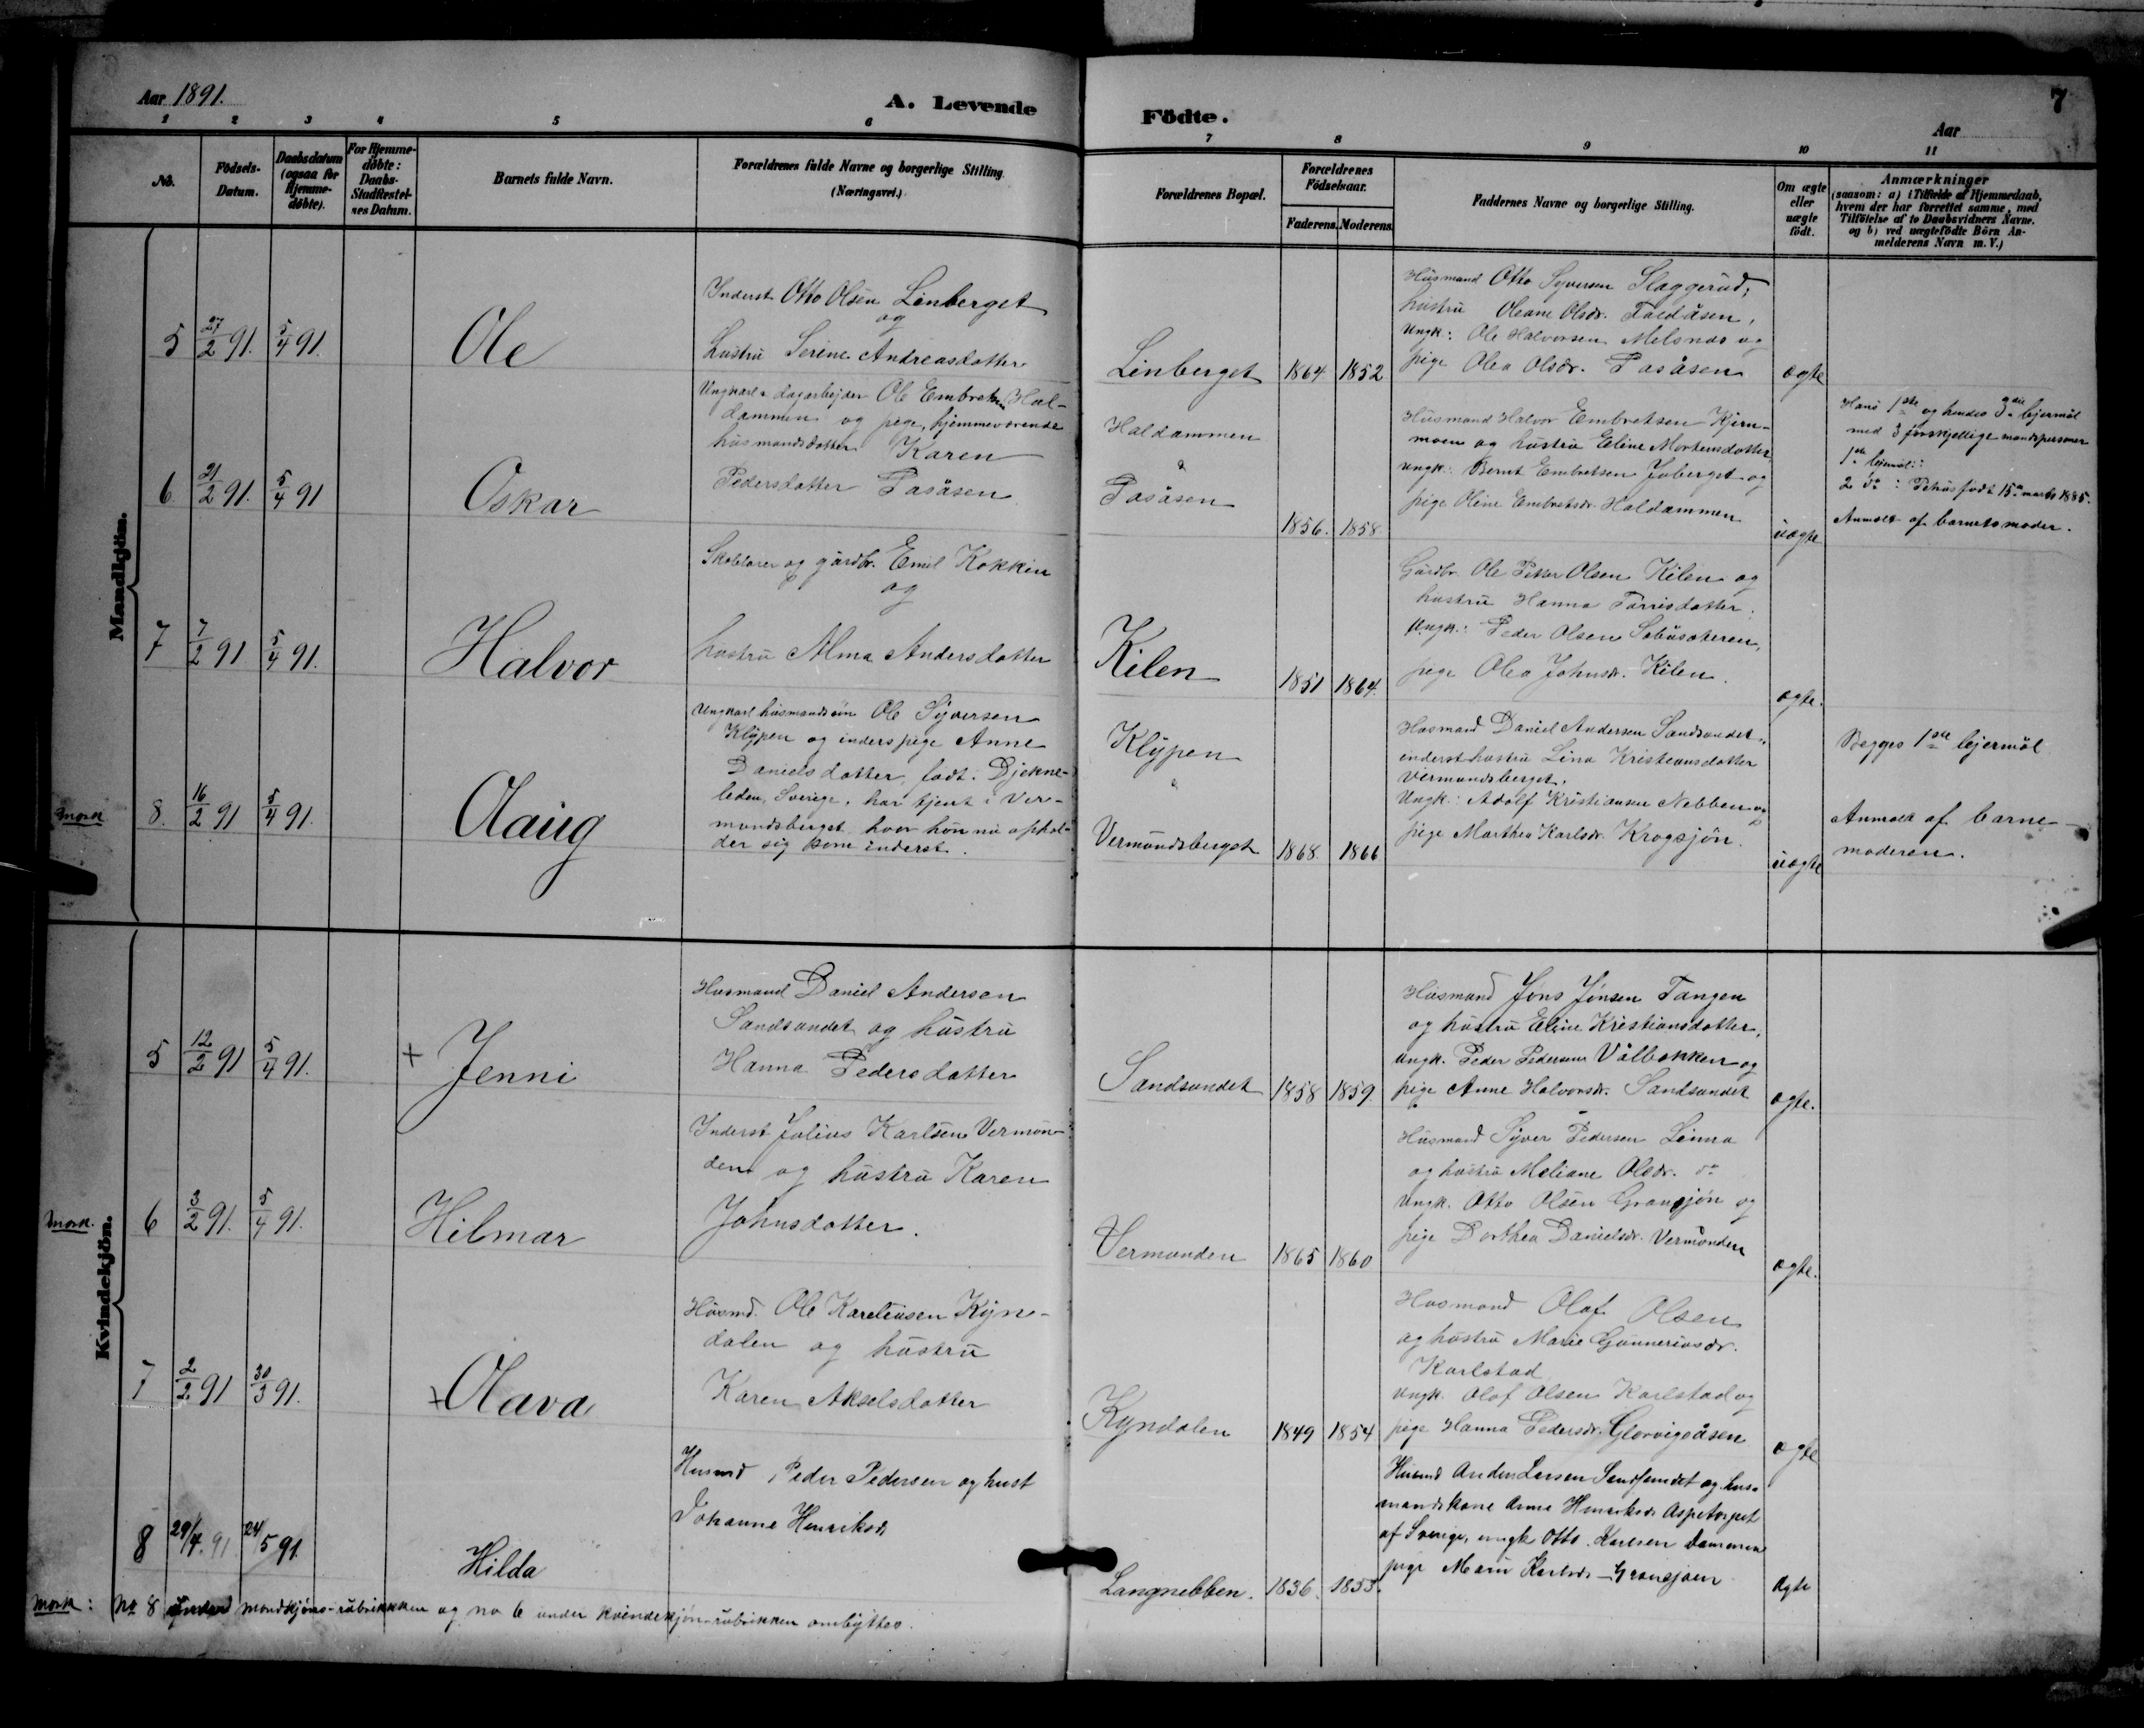 Aar 1891.
A. Levende
Födte.
Aar
7
1 2 3 4 5 6 7 8 9 10 11
No.
Födsels-
Datum.
Daabsdatum
(ogsaa for
Hjemme-
döbte).
For Hjemme-
döbte:
Daabs-
Stadfæstel-
ses Datum.
Barnets fulde Navn.
Forældrenes fulde Navne og borgerlige Stilling.
(Næringsvei.)
Forældrenes Bopæl.
Forældrenes
Födselsaar.
Faderens. Moderens.
Faddernes Navne og borgerlige Stilling.
Om ægte
eller
uægte
födt.
Anmærkninger
(saasom: a) i Tilfælde af Hjemmedaab,
hvem der har forrettet samme, med
Tilföielse af to Daabsvidners Navne.
og b) ved uægtefödte Börn An-
melderens Navn m. V.)
Mandkjön.
5 27/2 91. 5/4 91. Ole
Inderst Otto Olsen Linberget
og
hustru Serine Andreasdotter
Linberget 1864 1852
Husmand Otto Syversen Slaggerud,
hustru Oleane Olsdr. Faldåsen,
Ungk: Ole Halvorsen Melsnas og
pige Olea Olsdr. Pasåsen
ægte
6 21/2 91. 5/4 91 Oskar
Ungkarl & dagarbejder Ole Embretsen Hal-
dammen og pige, hjemmeværende
husmandsdotter Karen
Pedersdotter Pasåsen
Haldammen
&
Pasåsen
1856. 1858.
Husmand Halvor Embretsen Kjern-
moen og hustru Eline Mortensdotter,
ungk: Bernt Embretsen Joberget og
pige Oline Embretsdr. Haldammen
uægte
Hans 1ste og hendes 3die lejermål
med 3 forskjellige mandspersoner
1ste lejermål:
2 do: født 15de marts 1885.
Anmeldt af barnets moder.
7 7/2 91 5/4 91. Halvor
Skolelærer og gårdbr. Emil Kokkin
og
hustru Alma Andersdotter
Kilen 1851 1864.
Gårdbr. Ole Petter Olsen Kilen og
hustru Hanna Tarrisdotter.
Ungk: Peder Olsen
pige Olea Johnsdr. Kilen.
ægte.
mærk 8. 16/2 91 5/4 91. Olaug
Ungkarl husmandssøn Ole Syversen
Klypen og inderspige Anne
Danielsdotter, født i Djekne-
leden, Sverige, har tjent i Ver-
mundsberget hvor hun nu ophol-
der sig som inderst.
Klypen
&
Vermundsberget 1868. 1866
Husmand Daniel Andersen Sandsundet,
inderst hustru Lina Kristiansdotter
Vermundsberget.
Ungk: Adolf Kristiansen Nebben og
pige Marthea Karlsdr. Krogsjön.
uægte
Begges 1ste lejermål
Anmeldt af barne-
moderen.
Kvindekjön.
5 12/2 91 5/4 91. + Jenni
Husmand Daniel Andersen
Sandsundet og hustru
Hanna Pedersdotter
Sandsundet 1858 1859
Husmand Jöns Jönsen Tangen
og hustru Eline Kristiansdotter,
ungk. Peder Pedersen Vålbakken og
pige Anne Halvorsdr. Sandsundet
ægte.
mærk. 6 3/2 91. 5/4 91. Hilmar
Inderst Julius Karlsen Vermun-
den og hustru Karen
Johnsdotter.
Vermunden 1865 1860
Husmand Syver Pedersen Linna
og hustru Meliane Olsdr. do
Ungk. Otto Olsen Gransjön og
pige Dorthea Danielsdr. Vermunden
ægte.
7 2/2 91 30/3 91. + Olava
Husmd. Ole Kareliusen Kyn-
dalen og hustru
Karen Akselsdotter
Kyndalen 1849 1854
Husmand Olaf Olsen
og hustru Marie Gunneriusdr.
Karlstad
Ungk. Olaf Olsen Karlstad og
pige Hanna Pedersdr. Glorvigsåsen
ægte
8 29/4. 91. 24/5 91. Hilda
Husmd Peder Pedersen og hust
Johanne Henriksdr
Langnebben. 1836. 1853.
Husmd Anders Larsen Sandsundet og hus-
mandskone Anna Henriksdr Aspetorpet
af Sverige, ungk Otto Karlsen Dammen
pige Marie Karlsdr Gransjoen
Ægte
Mærk: No 8 under mandkjöns-rubrikken og no 6 under kvindekjön-rubrikken ombyttes.